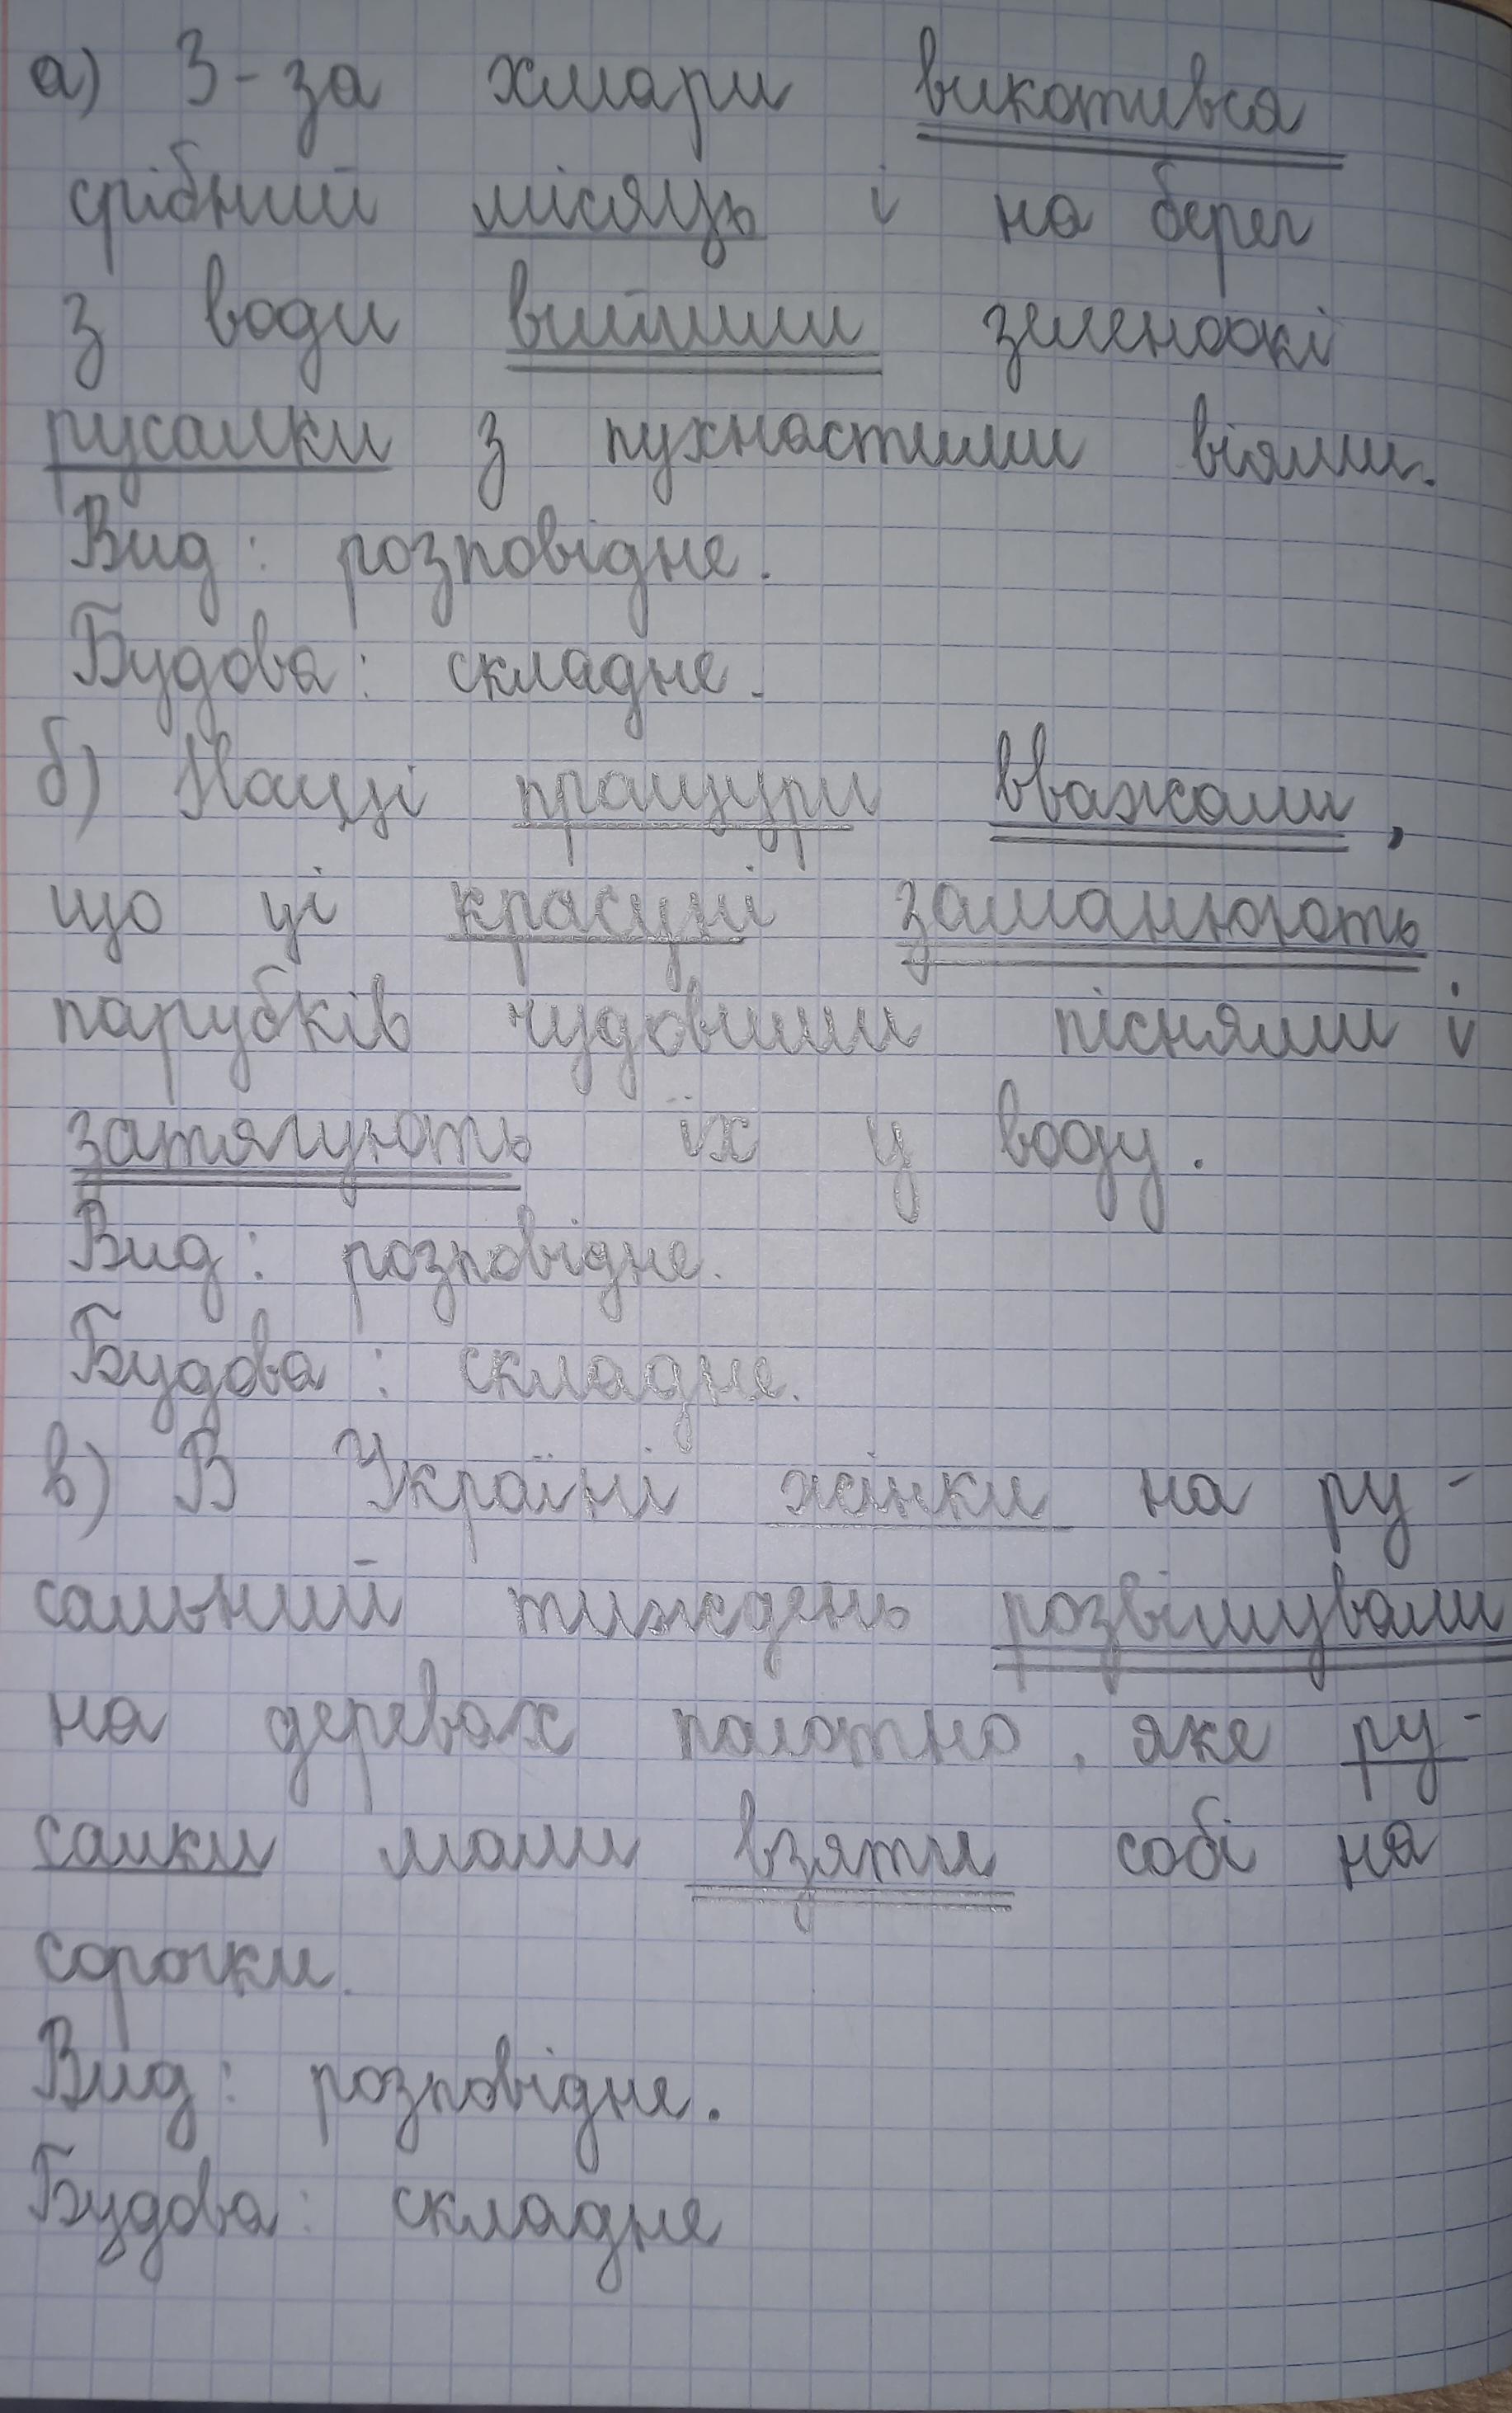 а) З-за хмари викотився
срібний місяць і на берег
з води вийшли зеленоокі
русалки з пухнастими віями.
Вид: розповідне.
Будова: складне.
б) Наші пращури вважали,
що ці красуні заманюють
парубків чудовими піснями і
затягують їх у воду.
Вид: розповідне.
Будова: складне.
в) В Україні жінки на ру-
сальний тиждень розвішували
на деревах полотно, яке ру-
салки мали взяти собі на
сорочки.
Вид: розповідне.
Будова: складне